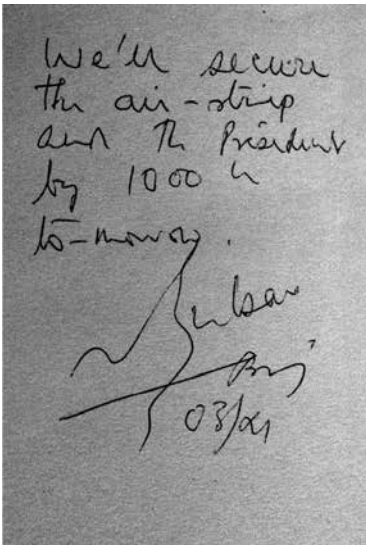 We'll secure
the air-strip
and the President
by 1000 h
to-morrow.
Brig